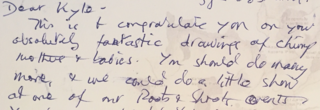 Dear Kyle -
This is t congratulate you on your
absolutely fantastic drawings of chimp
mothers & babies. You should do many
more, & we could do a little show
at one of our Roots & Shoots events